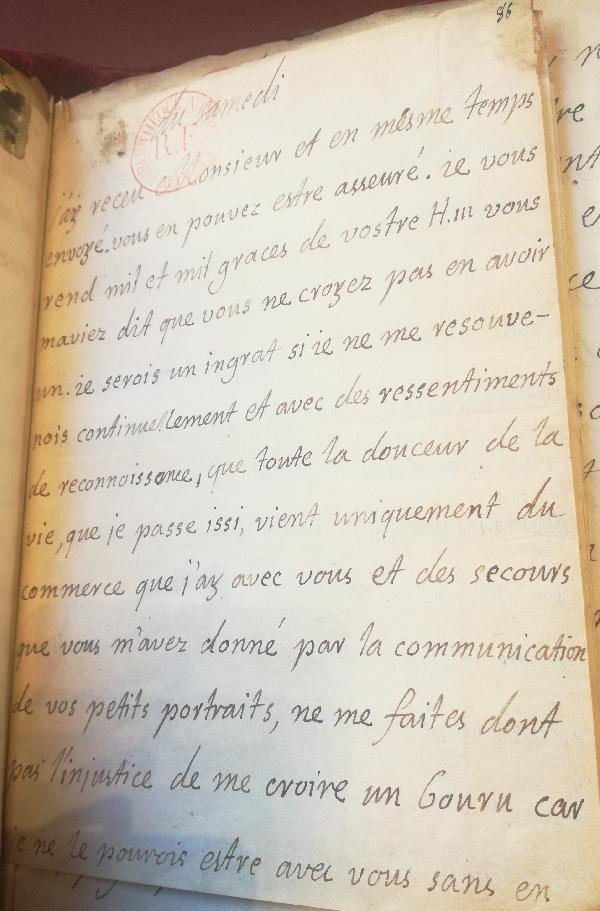 86
du samedi
R.F
j'ay receu Monsieur et en mesme temps
envoyé. vous en pouvez estre asseuré. ie vous
rend mil et mil graces de vostre H.in vous
maviez dit que vous ne croyez pas en avoir
un. ie serois un ingrat si ie ne me resouve-
nois continuellement et avec des ressentiments
de reconnoissance, que toute la douceur de la
vie, que je passe issi, vient uniquement du
commerce que j'ay avec vous et des secours
que vous m'avez donné par la communication
de vos petits portraits, ne me faites dont
pas l'injustice de me croire un bouru car
ie ne le pourois estre avec vous sans en